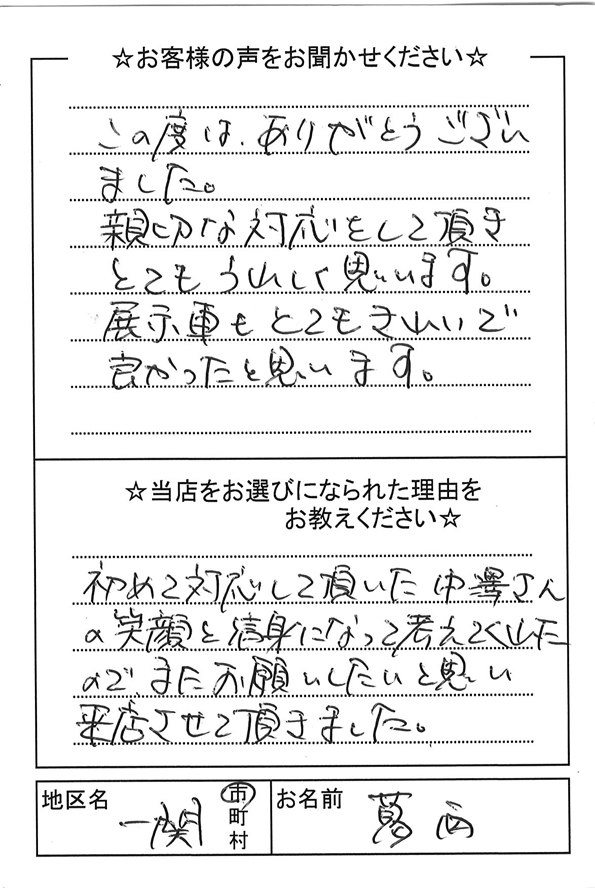 ☆お客様の声をお聞かせください☆
この度は、ありがとうござい
ました。
親切な対応をして頂き
とてもうれしく思います。
展示車もとてもきれいで
良かったと思います。
☆当店をお選びになられた理由を
お教えください☆
初めて対応して頂いた中澤さん
の笑顔と親身になって考えてくれた
ので、またお願いしたいと思い
来店させて頂きました。
地区名
一関
市
町
村
お名前
葛西